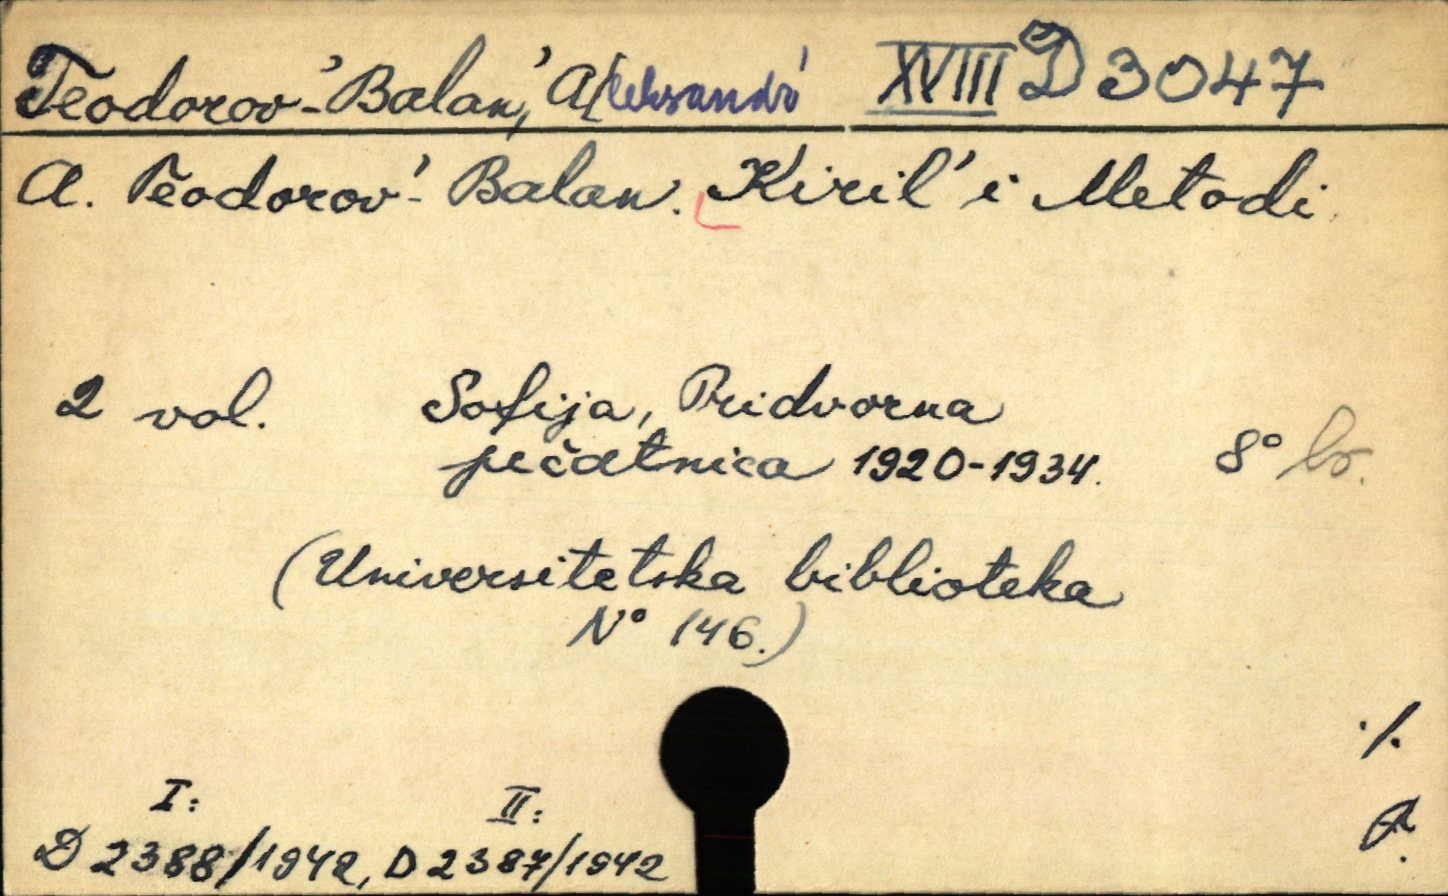 Teodorov'-Balan, A[leksandr' XVIII D 3047
A. Teodorov'-Balan. Kiril' i Metodi.
2 vol. Sofija, Pridvorna
pečatnica 1920-1934. 8° br.
(Universitetska biblioteka
N° 146.)
./.
I: II:
D 2388/1942, D 2387/1942